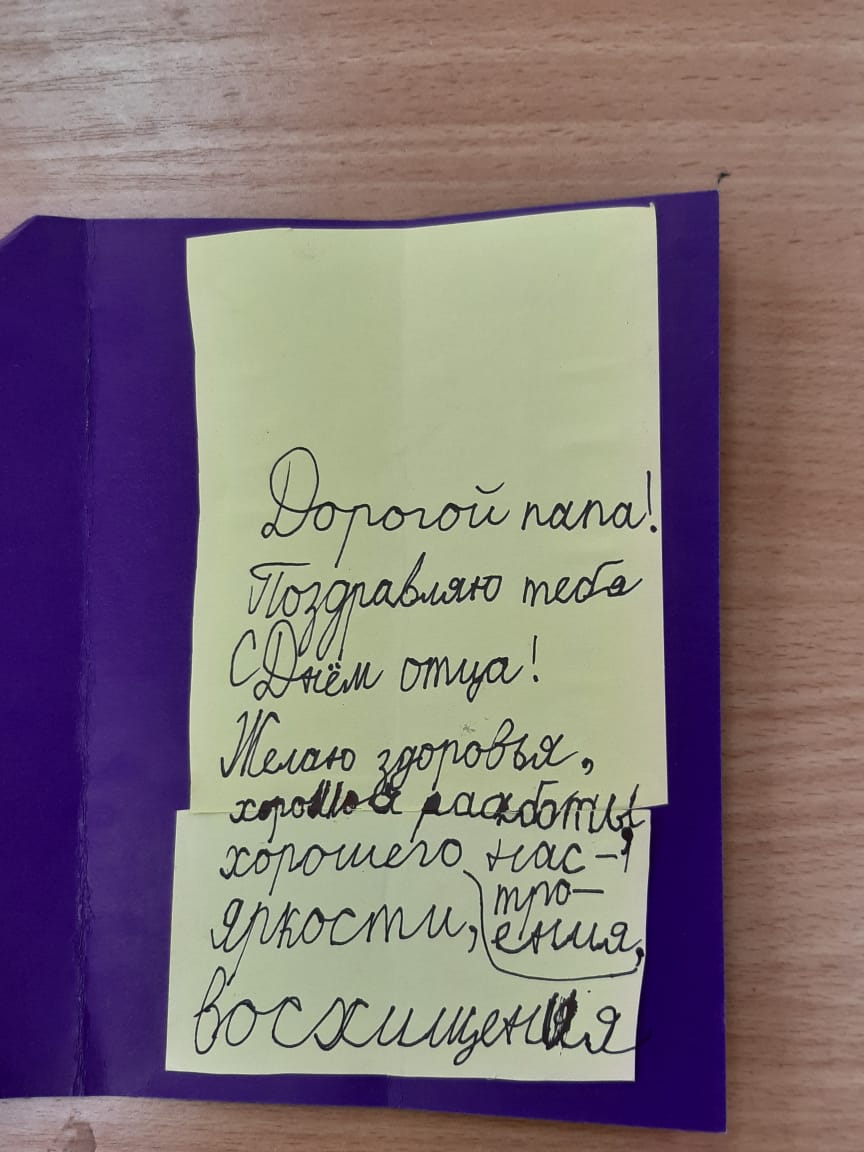 Дорогой папа!
Поздравляю тебя
С Днём отца!
Желаю здоровья,
хорошей работы,
хорошего нас-
тро-
яркости, ения,
восхищения